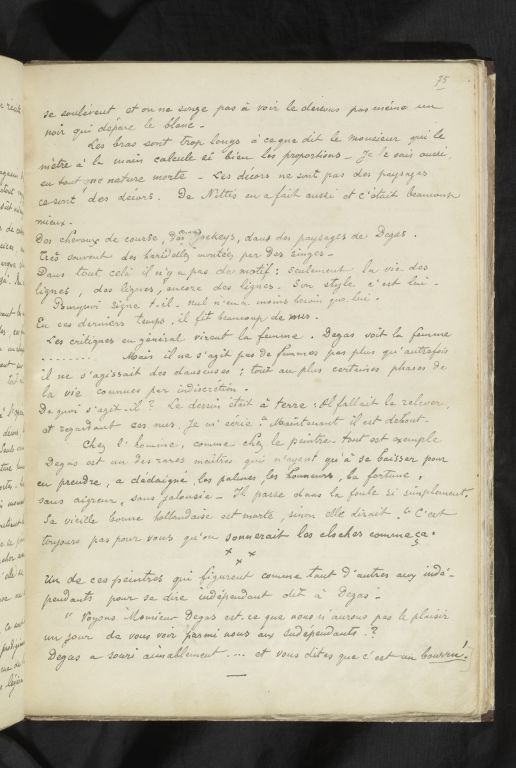 75
se soulèvent et on ne songe pas à voir le dessous pas même un
noir qui dépare le blanc _
Les bras sont trop longs à ce que dit le monsieur qui le
mètre à la main calcule si bien les proportions _ Je le sais aussi,
en tant que nature morte _ Les décors ne sont pas des paysages
ce sont des décors. De Nittis en a fait aussi et c'était beaucoup
mieux.
Des chevaux de course, des jockeys, dans des paysages de Degas.
Très souvent des haridelles montées par des singes _
Dans tout cela il n'y a pas de motif : seulement la vie des
lignes, des lignes, encore des lignes. Son style c'est lui _
Pourquoi signe t-il. nul n'en a moins besoin que lui.
En ces derniers temps, il fit beaucoup de nus.
Les critiques en général virent la femme. Degas voit la femme
........ Mais il ne s'agit pas de femmes pas plus qu'autrefois
il ne s'agissait des danseuses ; tout au plus certaines phases de
la vie connues par indiscrétion.
De quoi s'agit-il ? Le dessin était à terre : Il fallait le relever,
et regardant ces nus, Je m'écrie : Maintenant il est debout _
Chez l'homme, comme chez le peintre tout est exemple
Degas est un des rares maîtres qui n'ayant qu'à se baisser pour
en prendre, a dédaigné les palmes, les honneurs, la fortune,
sans aigreur, sans jalousie _ Il passe dans la foule si simplement.
Sa vieille bonne hollandaise est morte, sinon elle dirait. " C'est
toujours pas pour vous qu'on sonnerait les cloches comme ça.
x x x
Un de ces peintres qui figurent comme tant d'autres aux indé-
pendants pour se dire indépendant dit à Degas _
" Voyons Monsieur Degas est. ce que nous n'aurons pas le plaisir
un jour de vous voir parmi nous aux Indépendants . ?
Degas a souri aimablement .... et vous dites que c'est un bourru !.